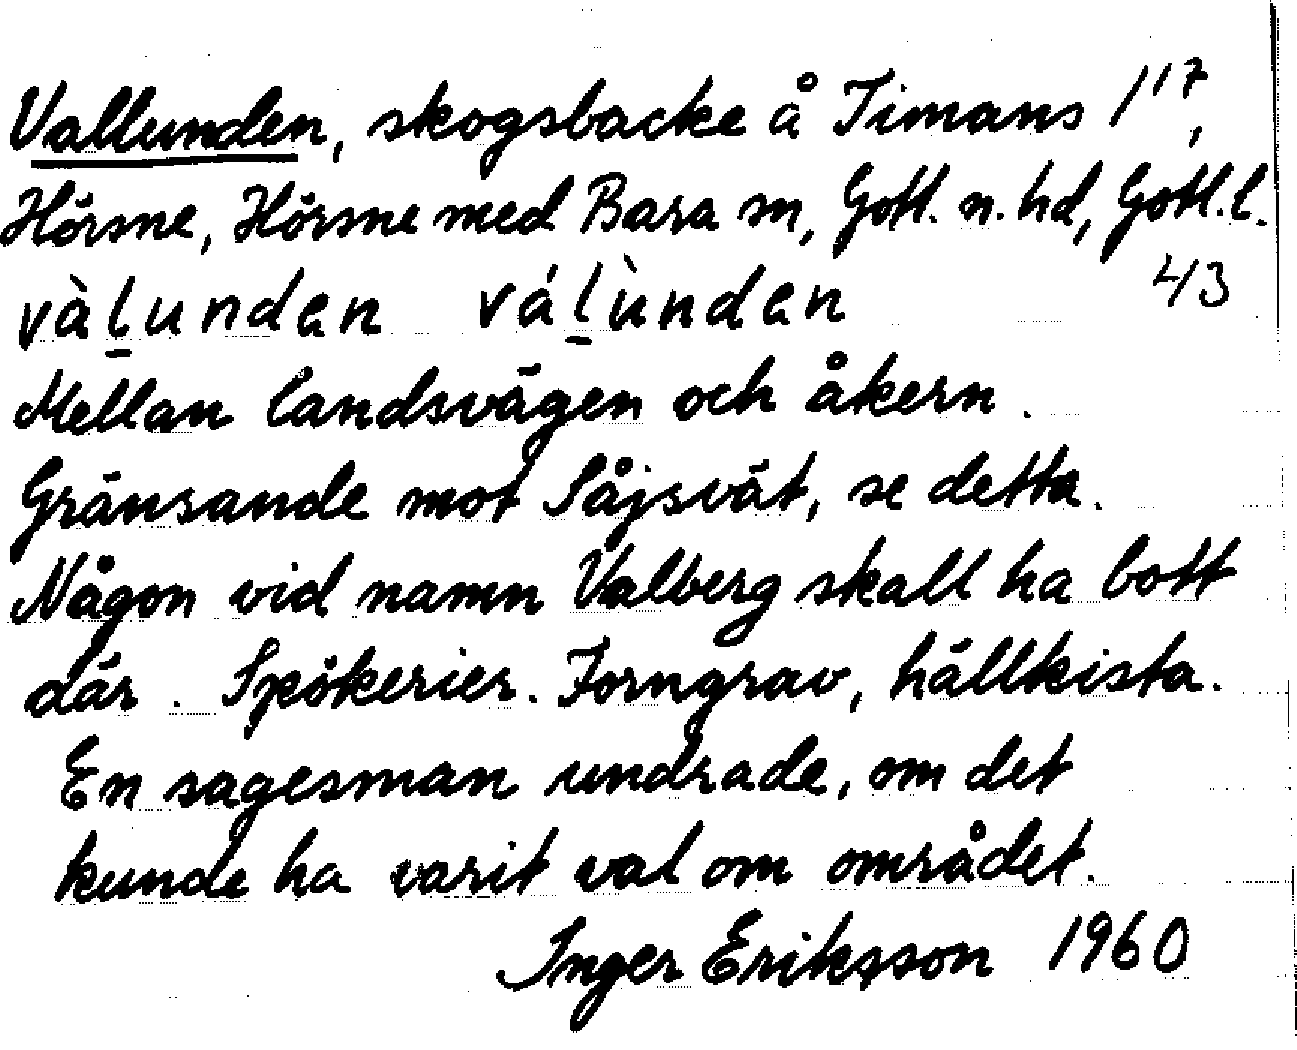 Vallunden, skogsbacke å Timans 1¹⁷,
Hörsne, Hörsne med Bara sn, Gotl. n. hd, Gotl. l.
vàḻunden váḻùnden 43
Mellan landsvägen och åkern.
Gränsande mot Såjsvät, se detta.
Någon vid namn Valberg skall ha bott
där. Spökerier. Forngrav, hällkista.
En sagesman undrade, om det
kunde ha varit val om området.
Inger Eriksson 1960